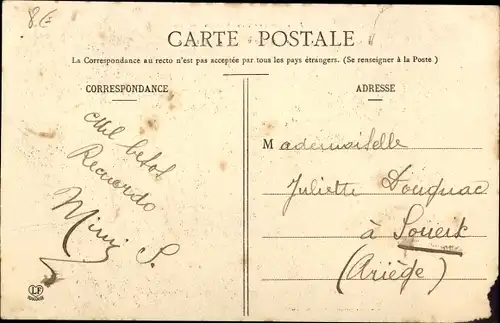 8€
CARTE POSTALE
La Correspondance au recto n'est pas acceptée par tous les pays étrangers. (Se renseigner à la Poste)
CORRESPONDANCE
Mil besos
Recuerdo
Mimi S.
ADRESSE
Mademoiselle
Juliette
à Soueix
(Ariège)
LF